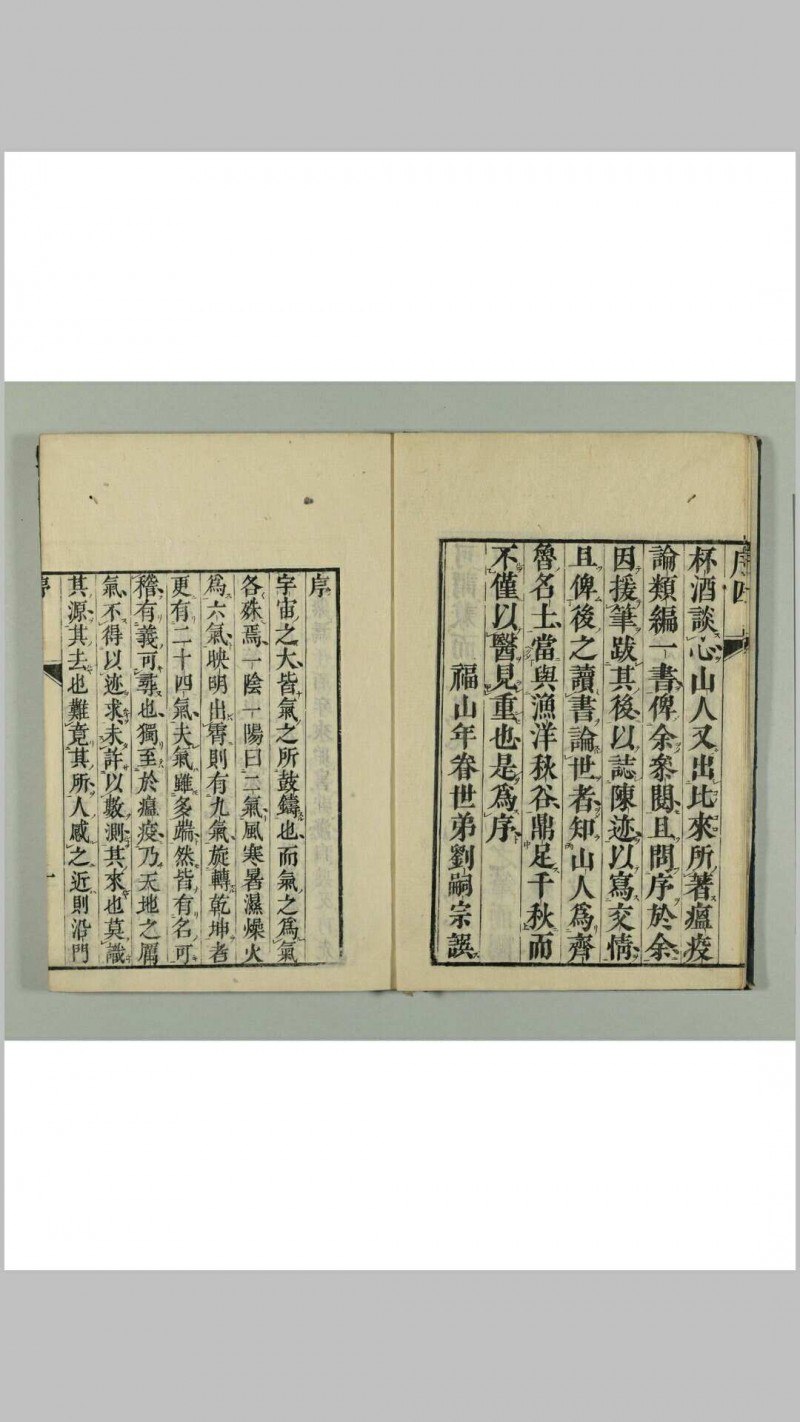 序四
杯酒談心山人又出比來所著瘟疫
論類編一書俾余叅閱且問序於余
因援筆跋其後以誌陳迹以寫交情
且俾後之讀書論世者知山人爲齊
魯名士當與漁洋秋谷鼎足千秋而
不僅以醫見重也是爲序
福山年眷世弟劉嗣宗譔
序
宇宙之大皆氣之所鼓鑄也而氣之爲氣
各殊焉一陰一陽曰二氣風寒暑濕燥火
爲六氣映明出霄則有九氣旋轉乾坤者
更有二十四氣夫氣雖多端然皆有名可
稽有義可尋也獨至於瘟疫乃天地之厲
氣不得以迹求未許以數測其來也莫識
其源其去也難竟其所人感之近則沿門
序
一